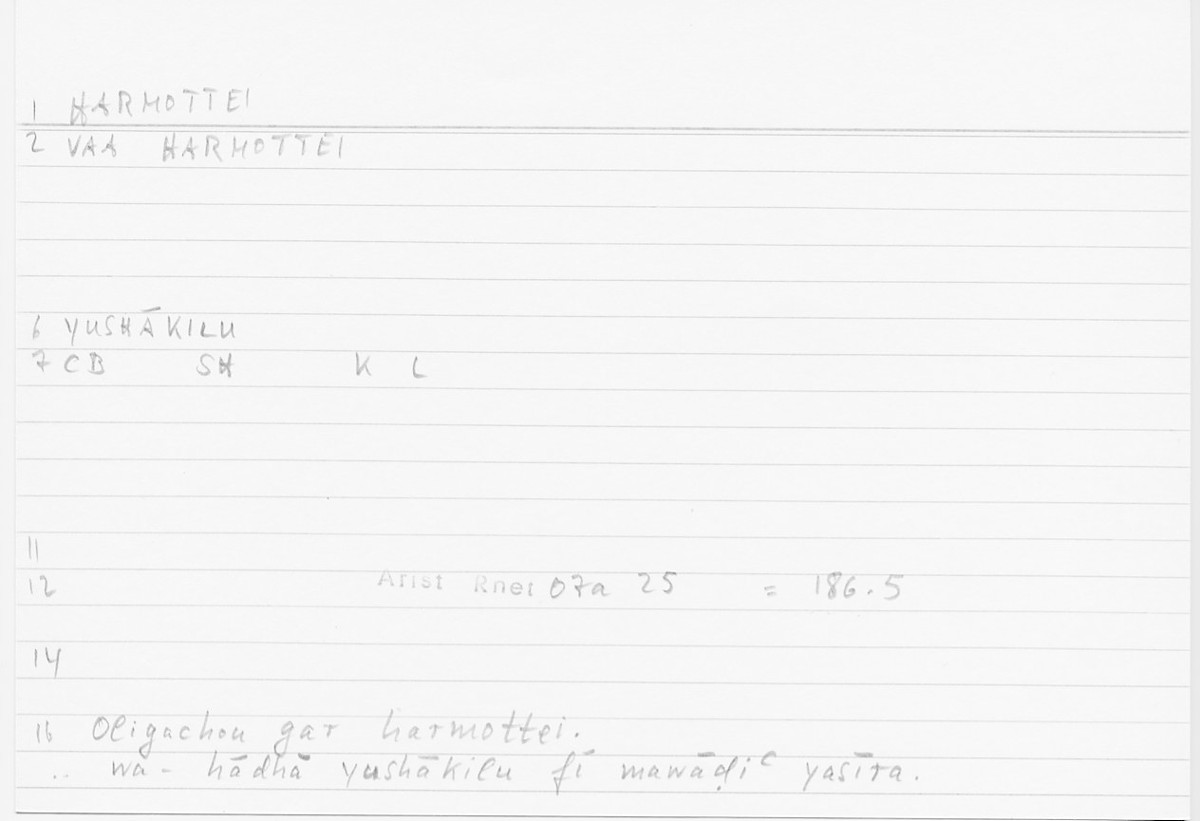 1 HARMOTTEI
2 VAA HARMOTTEI
6 YUSHĀKILU
7 CB SH K L
11
12 Arist Rhet 07a 25 = 186.5
14
16 Oligachou gar harmottei.
.. wa- hādhā yushākilu fī mawāḍiᶜ yasīra.